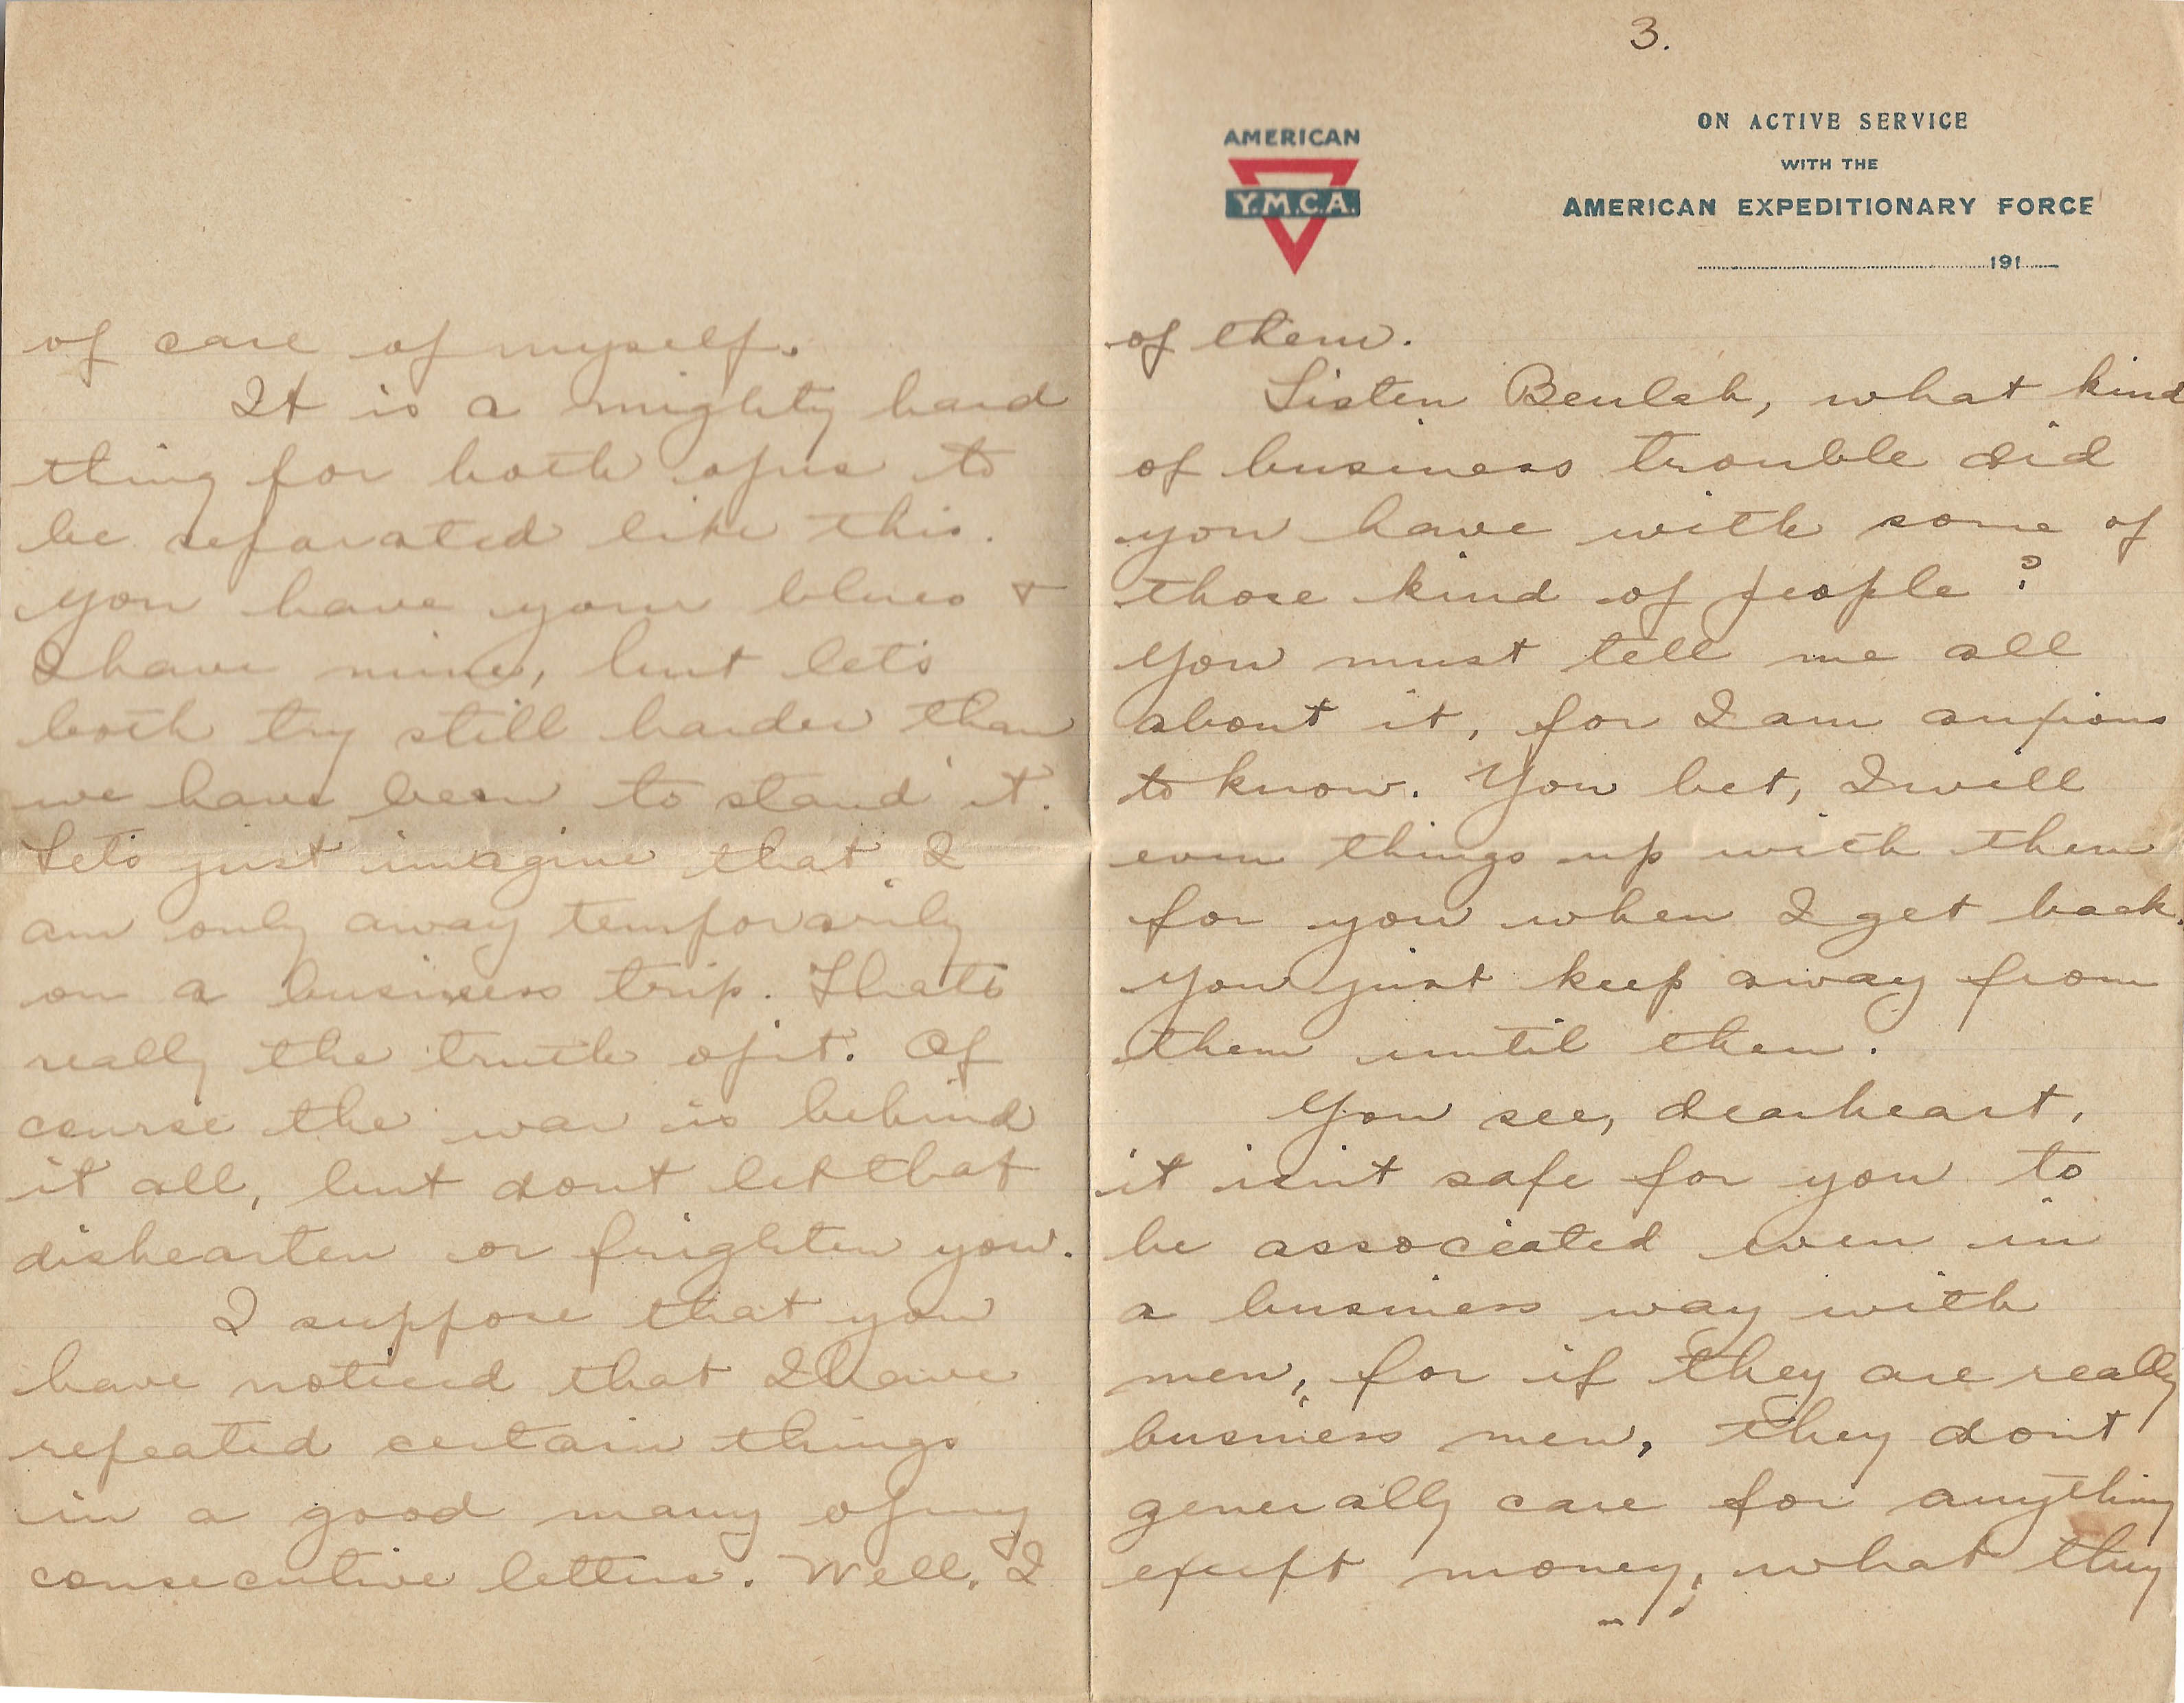 of care of myself.
It is a mighty hard
thing for both of us to
be separated like this.
You have your blues +
I have mine, but let's
both try still harder than
we have been to stand it.
Let's just imagine that I
am only away temporarily
on a business trip. Thats
really the truth of it. Of
course the war is behind
it all, but dont let that
dishearten or frighten you.
I suppose that you
have noticed that I have
repeated certain things
in a good many of my
consecutive letters. Well, I
3.
AMERICAN
Y.M.C.A.
ON ACTIVE SERVICE
WITH THE
AMERICAN EXPEDITIONARY FORCE
191
of them.
Listen Beulah, what kind
of business trouble did
you have with some of
those kind of people?
You must tell me all
about it, for I am anxious
to know. You bet, I will
even things up with them
for you when I get back.
You just keep away from
them until then.
You see, dearheart,
it isn't safe for you to
be associated even in
a business way with
men, for if they are really
business men, they dont
generally care for anything
except money, what they